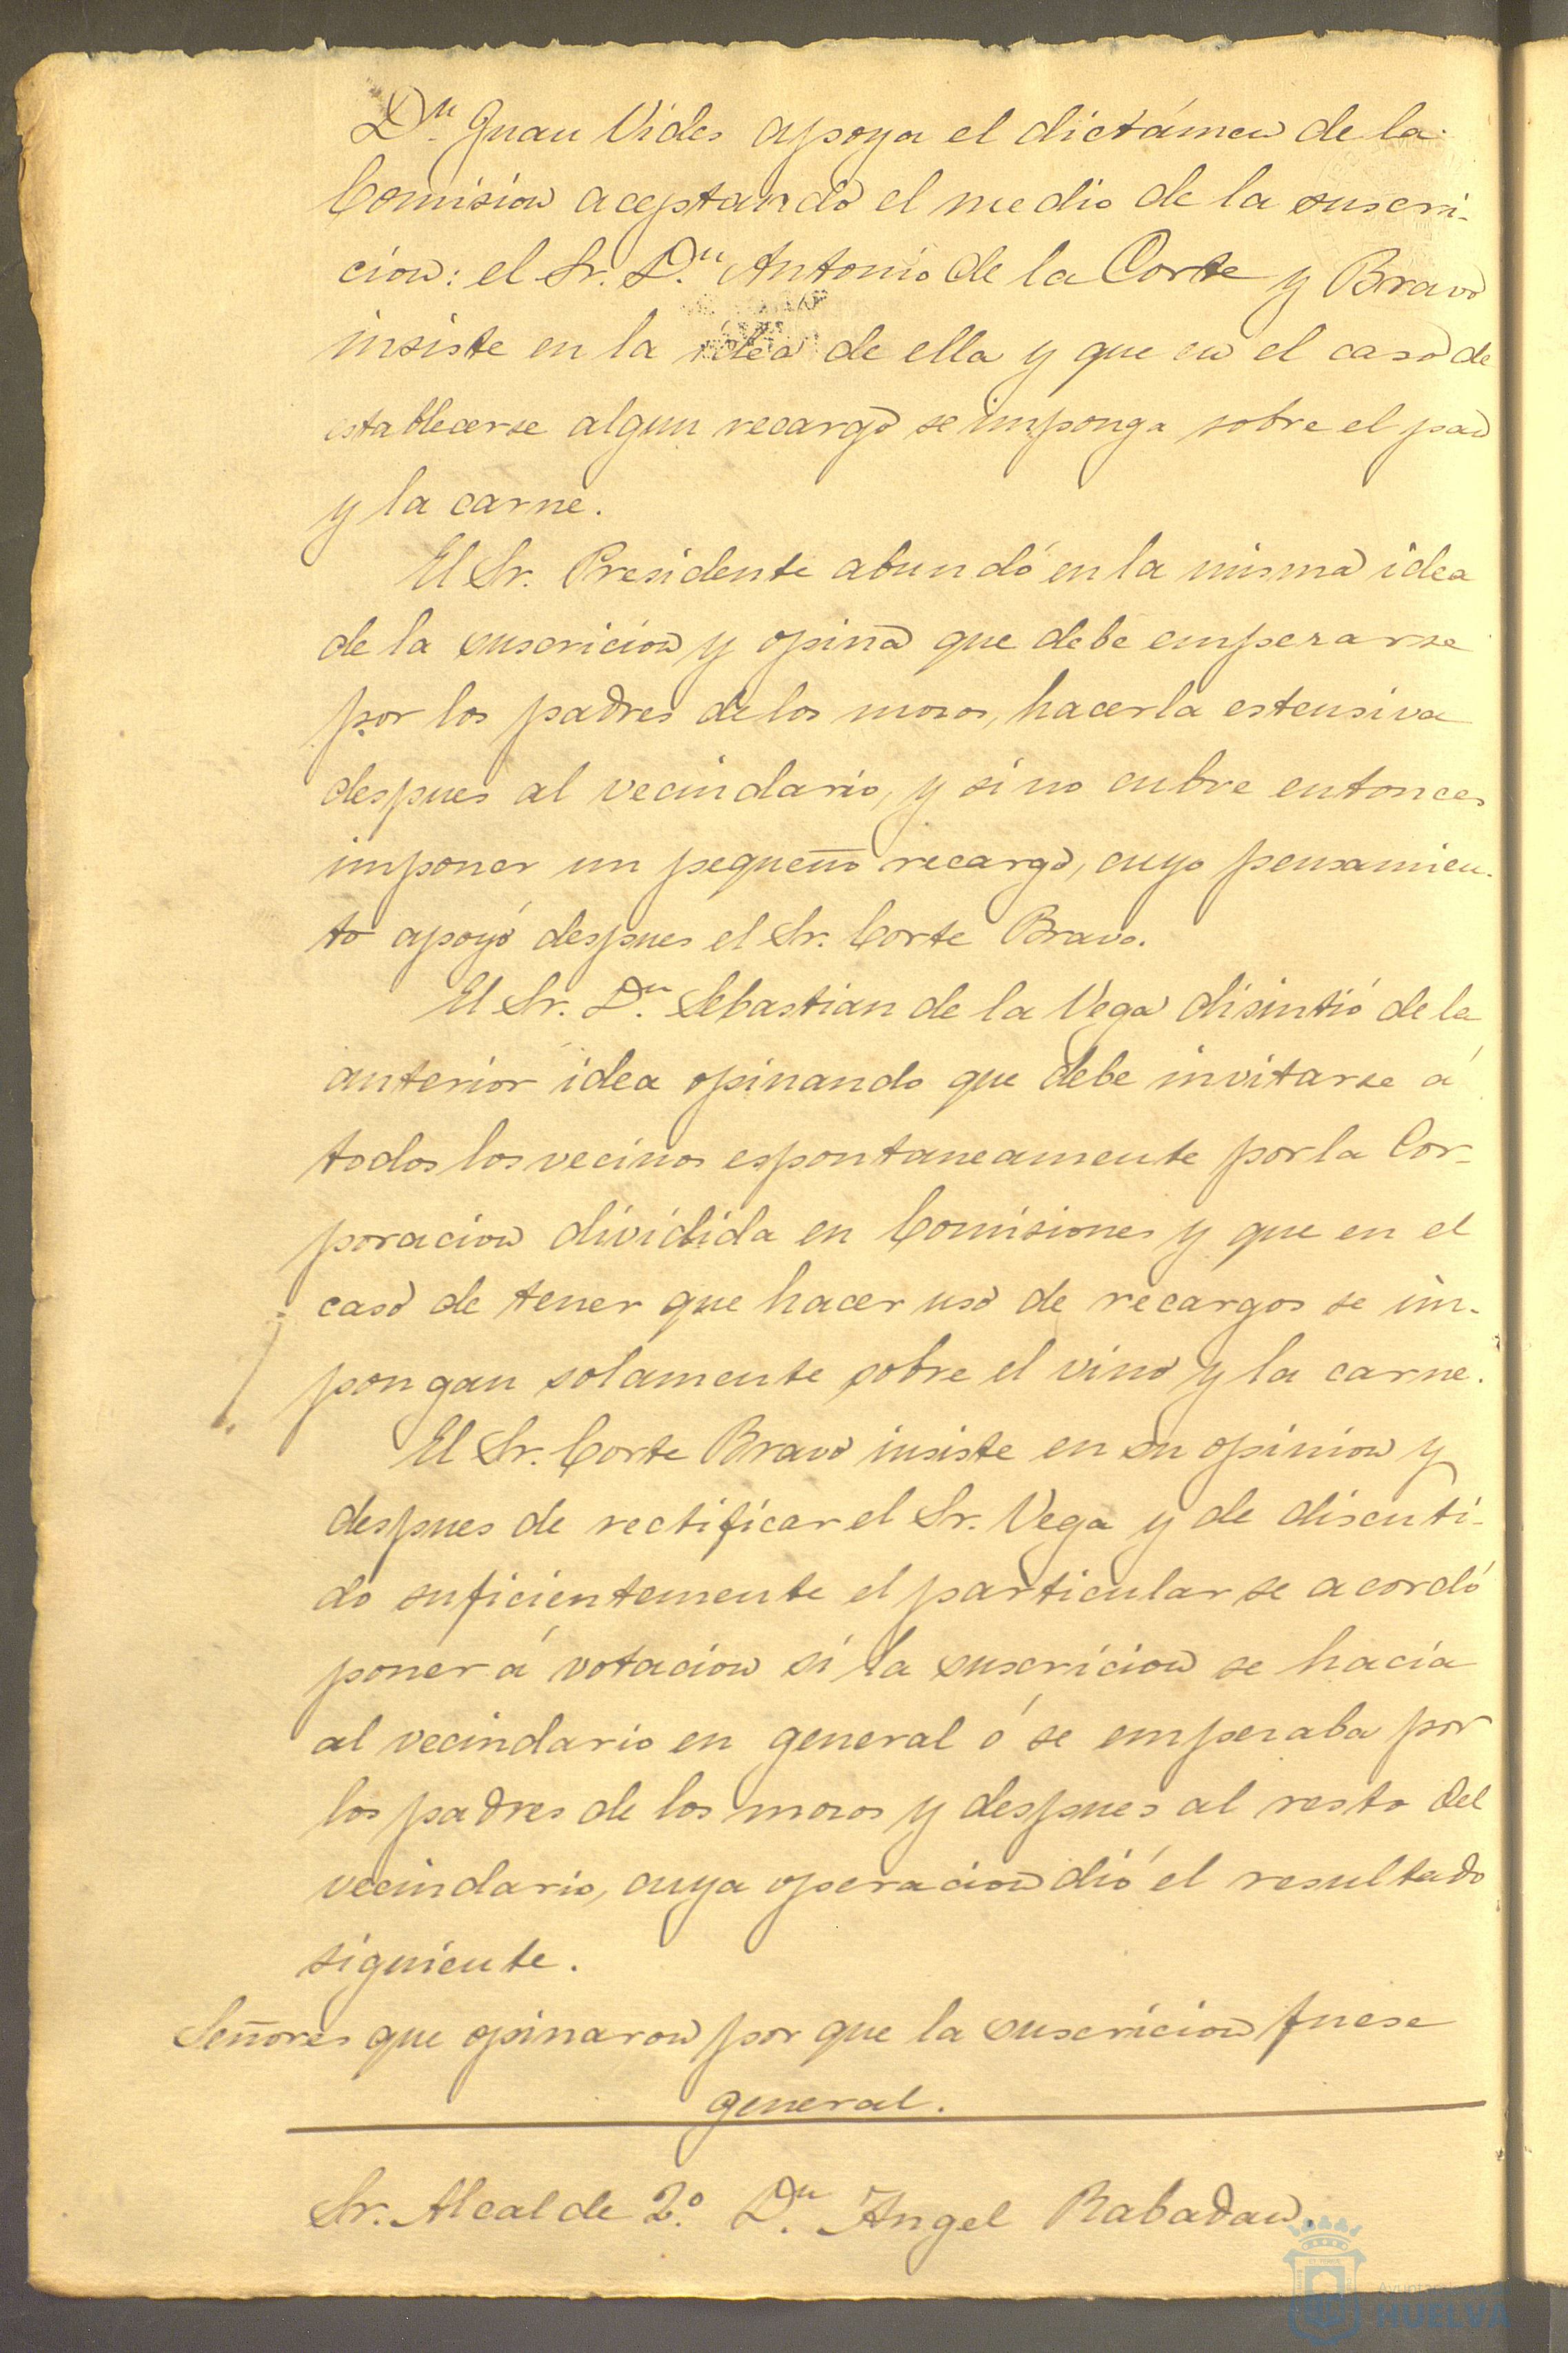 Dn. Juan Vides apoya el dictámen de la
Comision aceptando el medio de la suscri-
cion: el Sr. Dn. Antonio de la Corte y Bravo
insiste en la idea de ella y que en el caso de
establecerse algun recargo se imponga sobre el pan
y la carne.
El Sr. Presidente abundó en la misma idea
de la suscricion y opina que debe empezarse
por los padres de los mozos, hacerla estensiva
despues al vecindario, y si no cubre entonces
imponer un pequeño recargo, cuyo pensamien-
to apoyó despues el Sr. Corte Bravo.
El Sr. Dn. Sebastian de la Vega disintió de la
anterior idea opinando que debe invitarse á
todos los vecinos espontaneamente por la Cor-
poracion dividida en Comisiones y que en el
caso de tener que hacer uso de recargos se im-
pongan solamente sobre el vino y la carne.
El Sr. Corte Bravo insiste en su opinion y
despues de rectificar el Sr. Vega y de discuti-
do suficientemente el particular se acordó
poner á votacion si la suscricion se hacía
al vecindario en general ó se empezaba por
los padres de los mozos y despues al resto del
vecindario, cuya operacion dió el resultado
siguiente.
Señores que opinaron por que la suscricion fuese
general.
Sr. Alcalde 2.º Dn. Angel Rabadan.
HUELVA